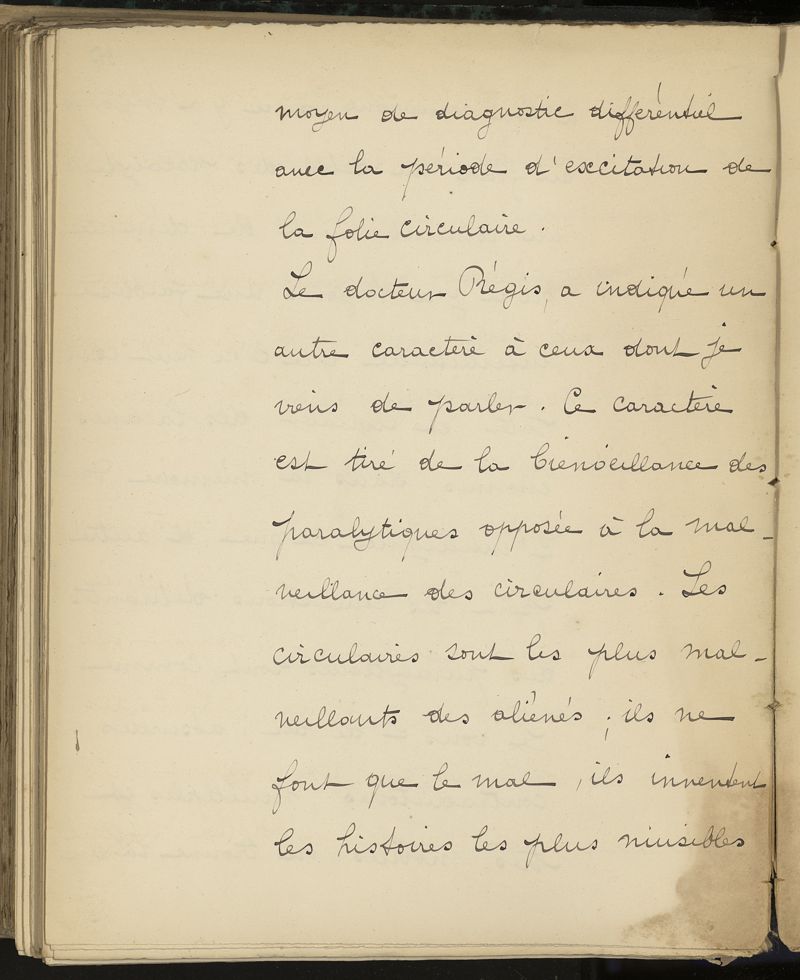 moyen de diagnostic différentiel
avec la période d'excitation de
la folie circulaire.
Le docteur Régis, a indiqué un
autre caractère à ceux dont je
viens de parler. Ce caractère
est tiré de la bienveillance des
paralytiques opposée à la mal-
veillance des circulaires. Les
circulaires sont les plus mal-
veillants des aliénés; ils ne
font que le mal, ils inventent
les histoires les plus nuisibles